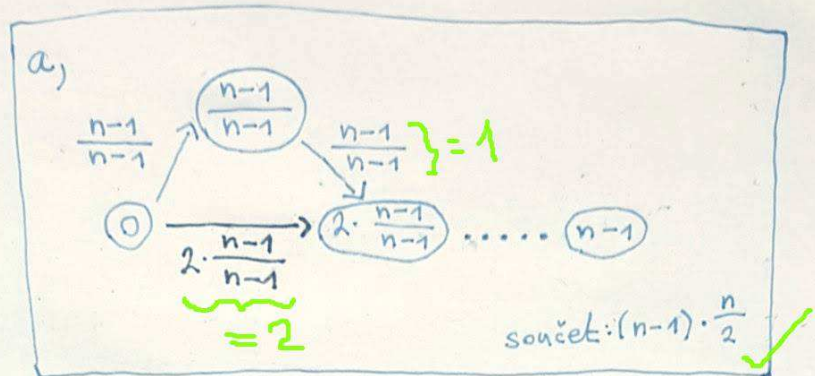 a,
n-1
n-1
n-1
n-1
n-1
n-1
} = 1
0
2 · n-1
n-1
2 · n-1
n-1
.....
n-1
= 2
součet: (n-1) · n
2